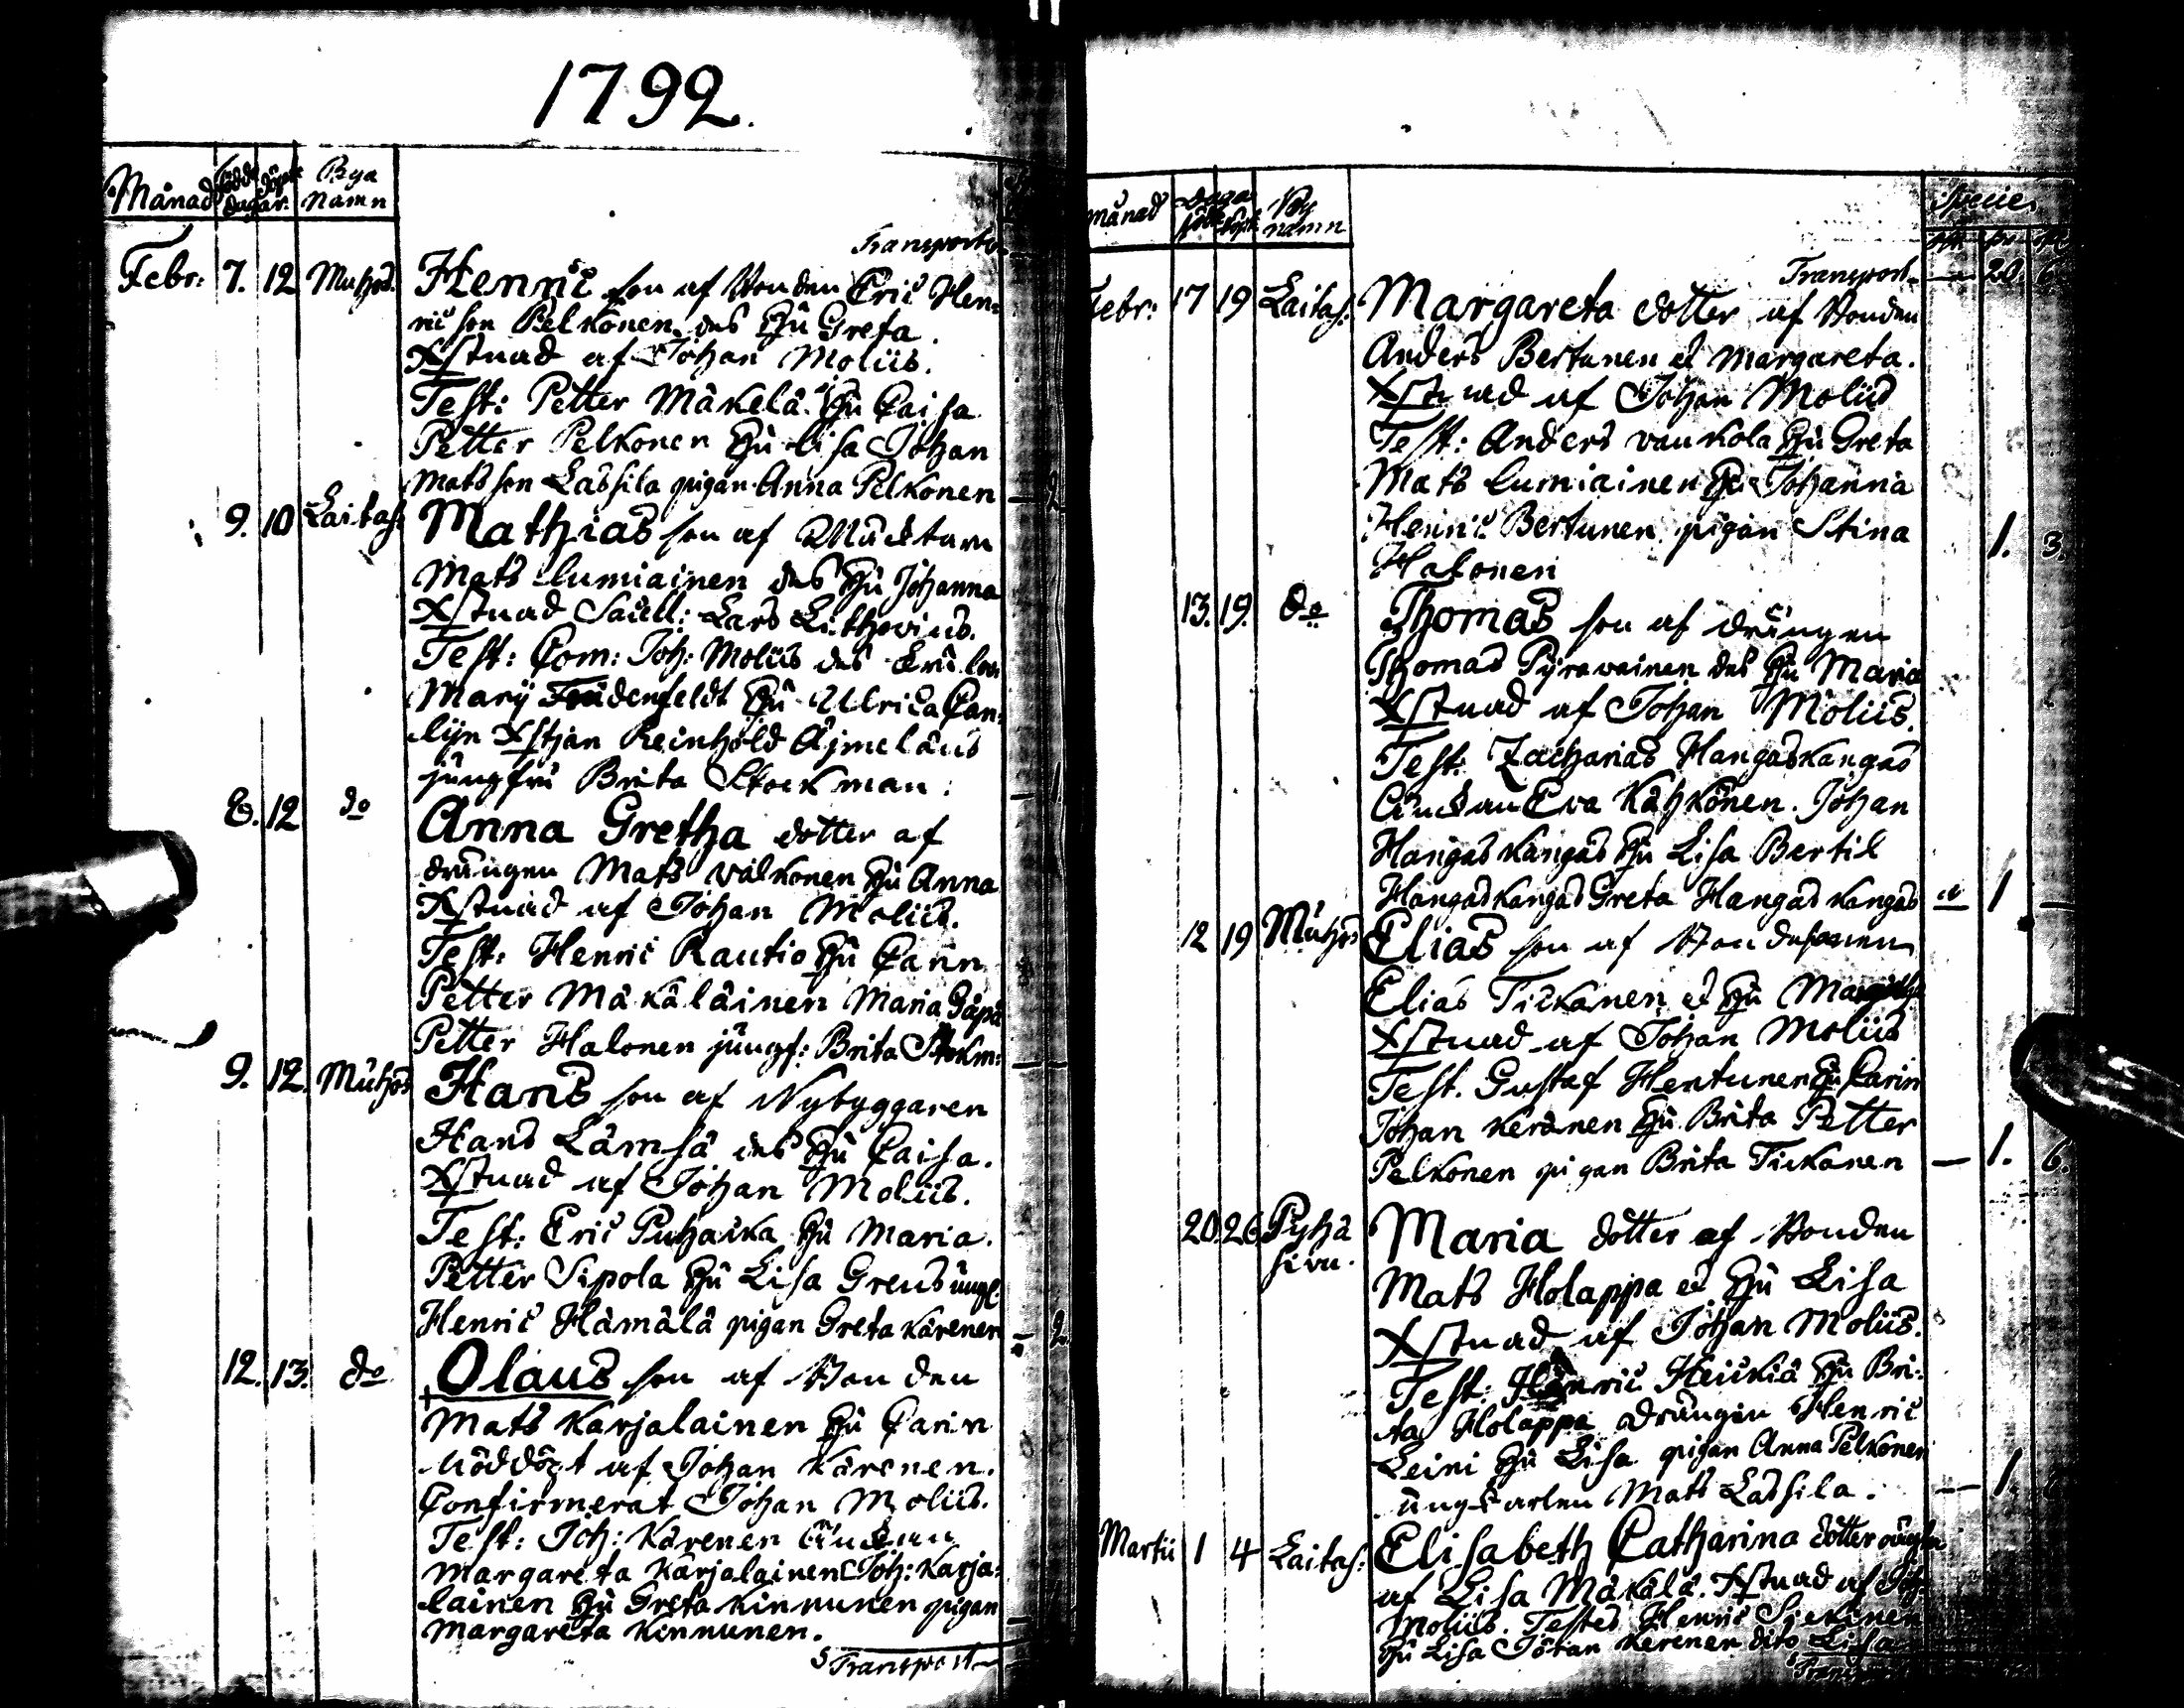 1792.
Månad födde döpte dagar. Bya namn
Transport
Febr: 7. 12 Muhos. Henric son af Bonden Eric Hen-
ric son Pelkonen des Hu Greta.
Xstnad af Johan Moliis.
Test: Petter Mäkelä. Hu Caisa
Petter Pelkonen Hu Lisa Johan
Matsson Lassila pigan Anna Pelkonen
9. 10 Laitas: Mathias son af
Mats Lumiainen des Hu Johanna
Xstnad Sacell: Lars Lithovius.
Test: Com: Joh: Moliis des
Hu Ulrica Can-
Xstjan Reinhold Äjmeläus
jungfru Brita Stockman.
8. 12 do Anna Gretha dotter af
drängen Mats Valkonen Hu Anna
Xstnad af Johan Moliis.
Test: Henric Rautio Hu Carin
Petter Mäkäläinen Maria
Petter Halonen jungf: Brita Stokm:
9. 12. Muhos Hans son af Nybyggaren
Hans Lämsä des Hu Caisa.
Xstnad af Johan Moliis.
Test: Eric Puhacka Hu Maria.
Petter Sipola Hu Lisa Greus ungk:
Henric Hämälä pigan Greta Kärenen 2
12. 13. do Olaus son af Bonden
Mats Karjalainen Hu Carin
Nöddöpt af Johan Kärenen.
Confirmerat Johan Moliis.
Test: Joh: Kärenen änckan
Margareta Karjalainen Joh: Karja-
lainen Hu Greta Kinnunen pigan
Margareta Kinnunen.
Transport
månad Daga född döpt By namn Specie
Transport 20. 6.
Febr: 17 19 Laitas: Margareta dotter af Bonden
Anders Bertunen et Margareta.
Xstnad af Johan Moliis
Test: Anders Vaukola Hu Greta
Mats Lumiainen Hu Johanna
Henric Bertunen pigan Stina 1. 3.
Halonen
13. 19. do Thomas son af drängen
Thomas Pyrävainen des Hu Maria
Xstnad af Johan Moliis.
Test: Zacharias Hangaskangas
änckan Eva Kähkönen. Johan
Hangaskangas Hu Lisa Bertil
Hangaskangas Greta Hangaskangas 1 —
12 19 Muhos Elias son af Bondesonen
Elias Tickanen et Hu
Xstnad af Johan Moliis
Test. Gustaf Hentunen Hu Carin
Johan Keränen Hu Brita Petter
Pelkonen pigan Brita Tickanen — 1. 6.
20. 26. Pyhä Maria dotter af Bonden
Mats Holappa et Hu Lisa
Xstnad af Johan Moliis.
Test: Henric Heickiä Hu Bri-
ta Holappa drängen Henric
Leini Hu Lisa pigan Anna Pelkonen
ungkarlen Mats Lassila. — 1.
Martii 1 4 Laitas: Elisabeth Catharina dotter
af Lisa Mäkälä. Xstnad af Joh:
Moliis. Testes Henric
Hu Lisa Johan Kerenen dito Lisa